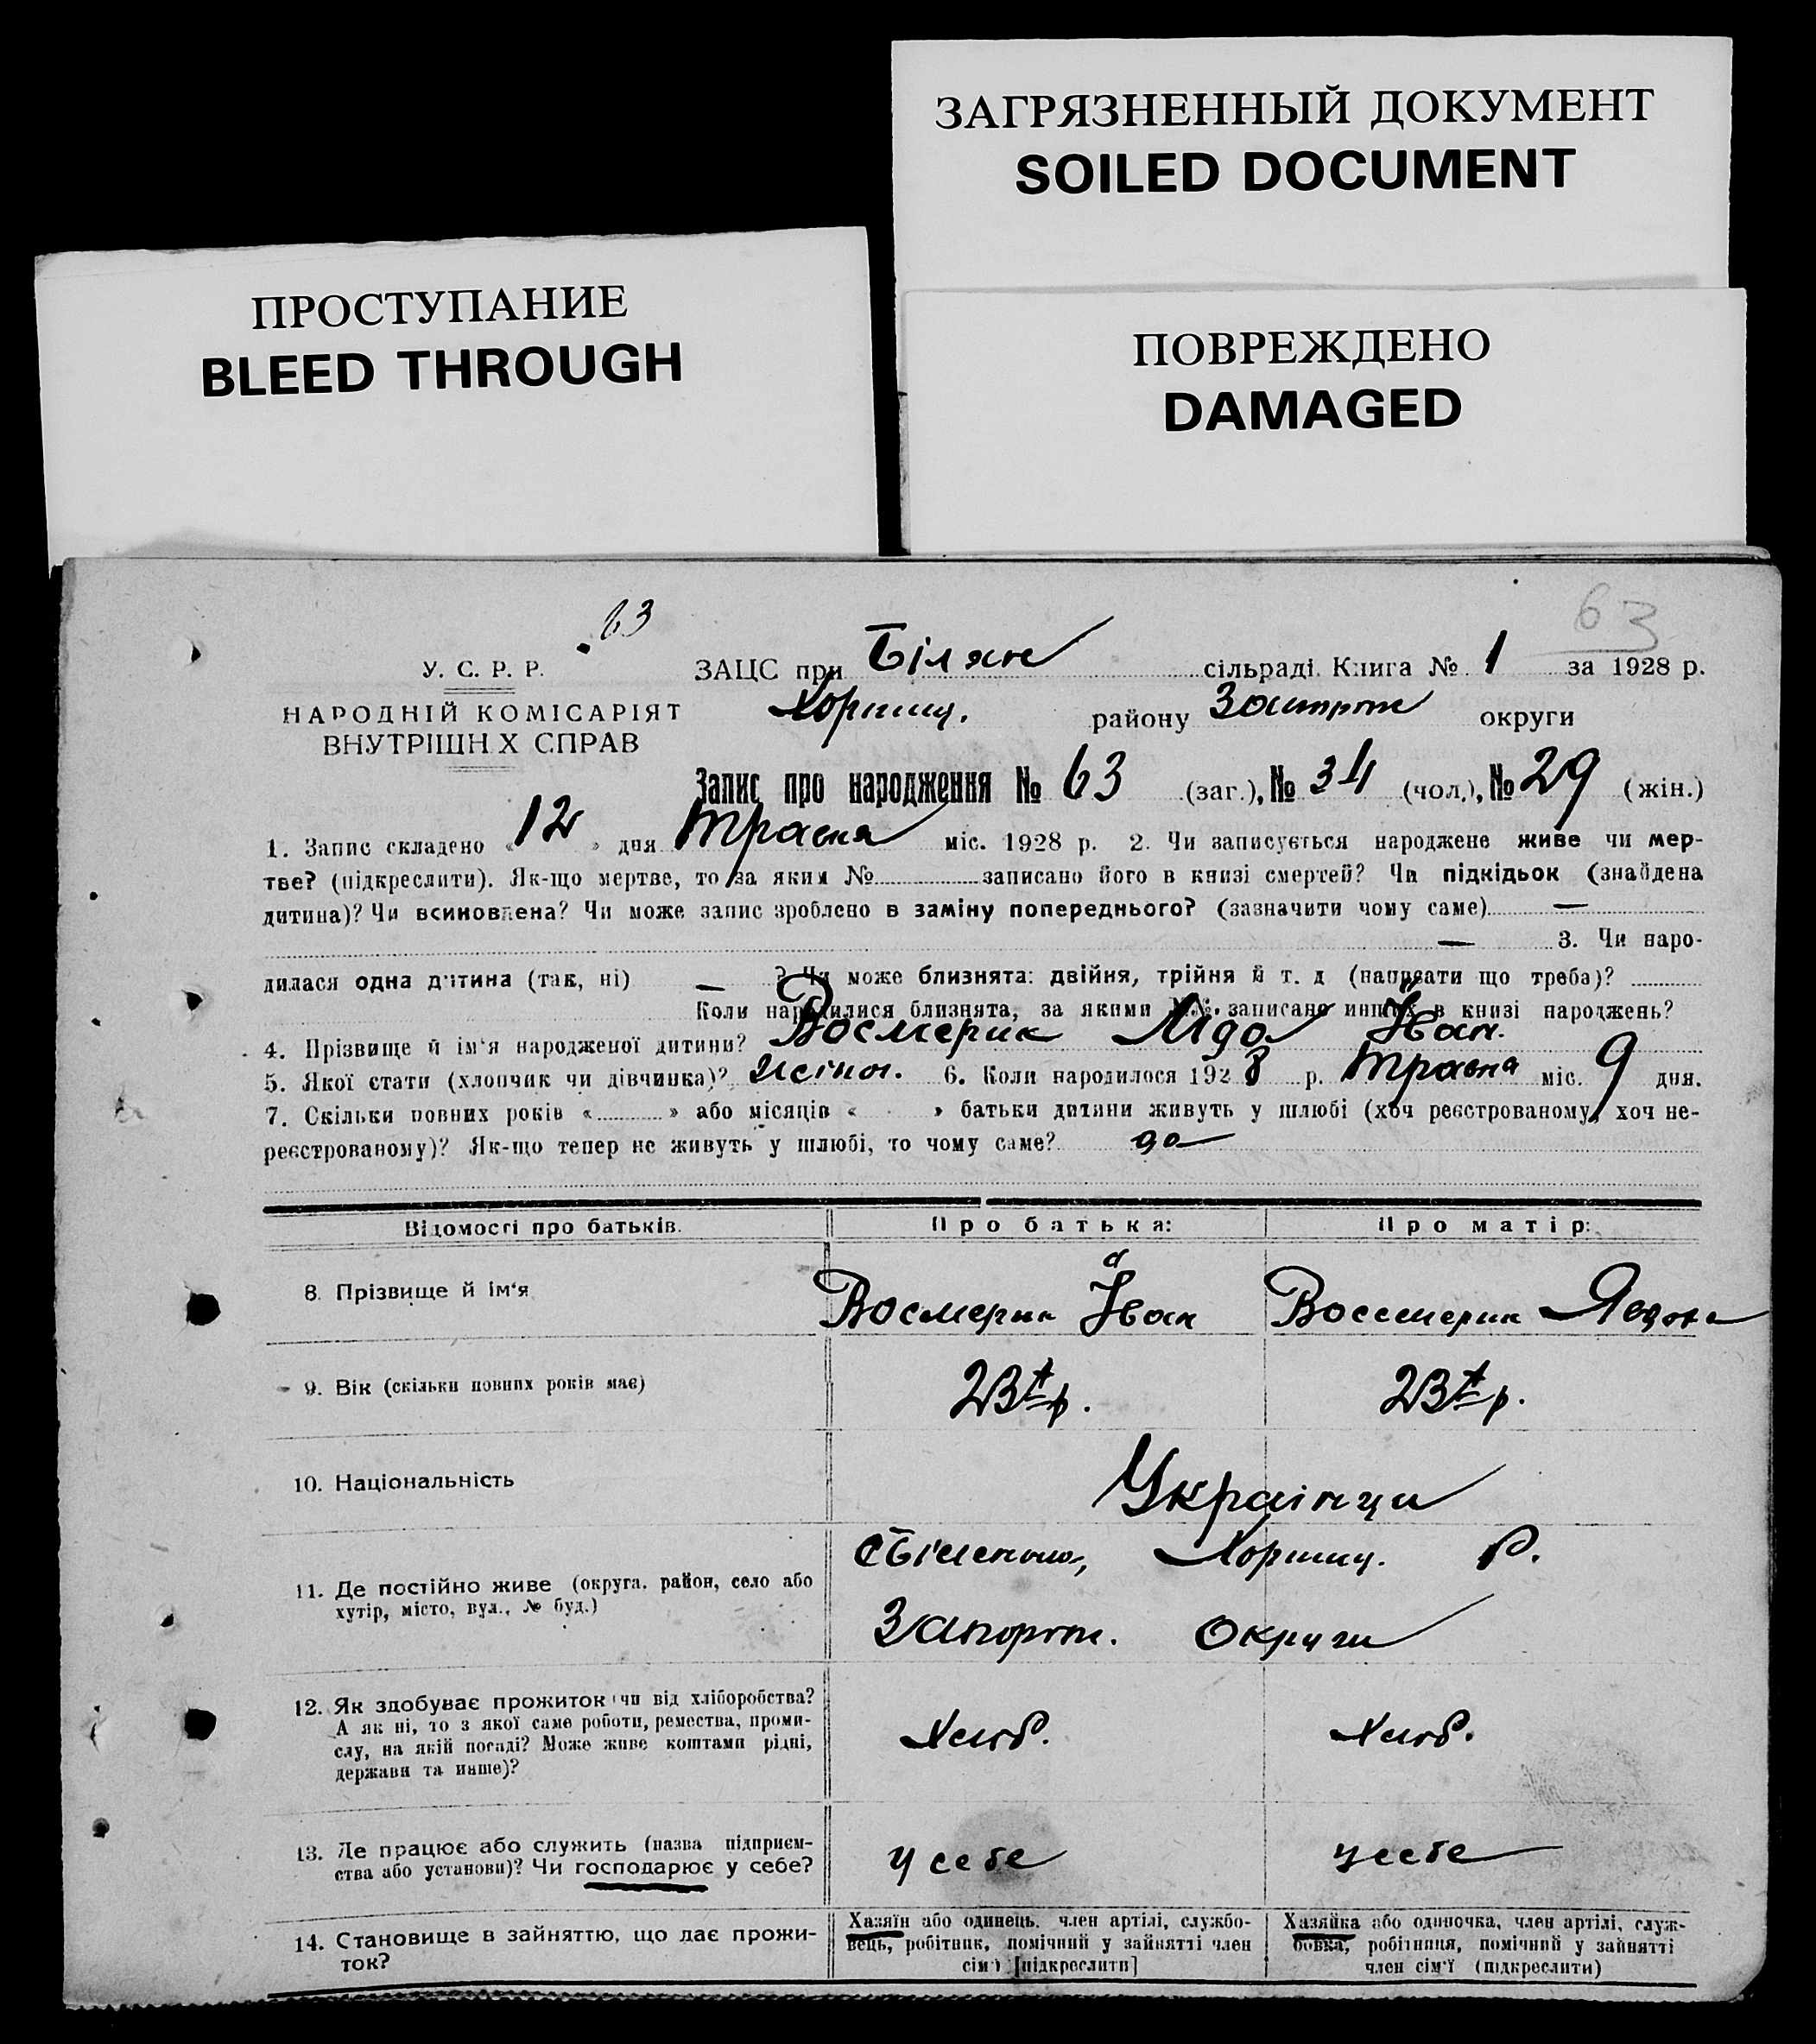 ЗАГРЯЗНЕННЫЙ ДОКУМЕНТ
SOILED DOCUMENT
ПРОСТУПАНИЕ
BLEED THROUGH
ПОВРЕЖДЕНО
DAMAGED
63
63
У. С. Р. Р.
НАРОДНІЙ КОМІСАРІЯТ
ВНУТРІШН Х СПРАВ
ЗАЦС при Біляне сільраді. Книга № 1 за 1928 р.
Хортиц. району округи
Запис про народження № 63 (заг.), № 34 (чол.), № 29 (жін.)
1. Запис складено « 12 » дня травня міс. 1928 р. 2. Чи записується народжене живе чи мер-
тве? (підкреслити). Як-що мертве, то за яким № записано його в книзі смертей? Чи підкідьок (знайдена
дитина)? Чи всиновлена? Чи може запис зроблено в заміну попереднього? (зазначити чому саме) —
— 3. Чи наро-
дилася одна дитина (так, ні) — ? Чи може близнята: двійня, трійня й т. д (написати що треба)?
Коли народилися близнята, за якими №№ записано инших в книзі народжень?
4. Прізвище й ім'я народженої дитини? Восмерик Лідо Іван.
5. Якої стати (хлопчик чи дівчинка)? жіноч. 6. Коли народилося 1928 р. травня міс. 9 дня.
7. Скільки повних років « » або місяців « » батьки дитини живуть у шлюбі (хоч реєстрованому, хоч не-
реєстрованому)? Як-що тепер не живуть у шлюбі, то чому саме? да
Відомості про батьків.
Про батька:
Про матір:
8. Прізвище й ім'я
Восмерик Іван
Восемерик
9. Вік (скільки повних років має)
23 р.
23 р.
10. Національність
Українци
11. Де постійно живе (округа, район, село або
хутір, місто, вул., № буд.)
Хортиц. Р.
Запорож. Округи
12. Як здобуває прожиток чи від хліборобства?
А як ні, то з якої саме роботи, ремества, проми-
слу, на якій посаді? Може живе коштами рідні,
держави та инше)?
Хліб.
Хліб.
13. Де працює або служить (назва підприєм-
ства або установи)? Чи господарює у себе?
у себе
у себе
14. Становище в зайняттю, що дає прожи-
ток?
Хазяїн або одинець, член артілі, службо-
вець, робітник, помічний у зайнятті член
сім'ї [підкреслити]
Хазяйка або одиночка, член артілі, служ-
бовка, робітниця, помічний у зайнятті
член сім'ї (підкреслити)